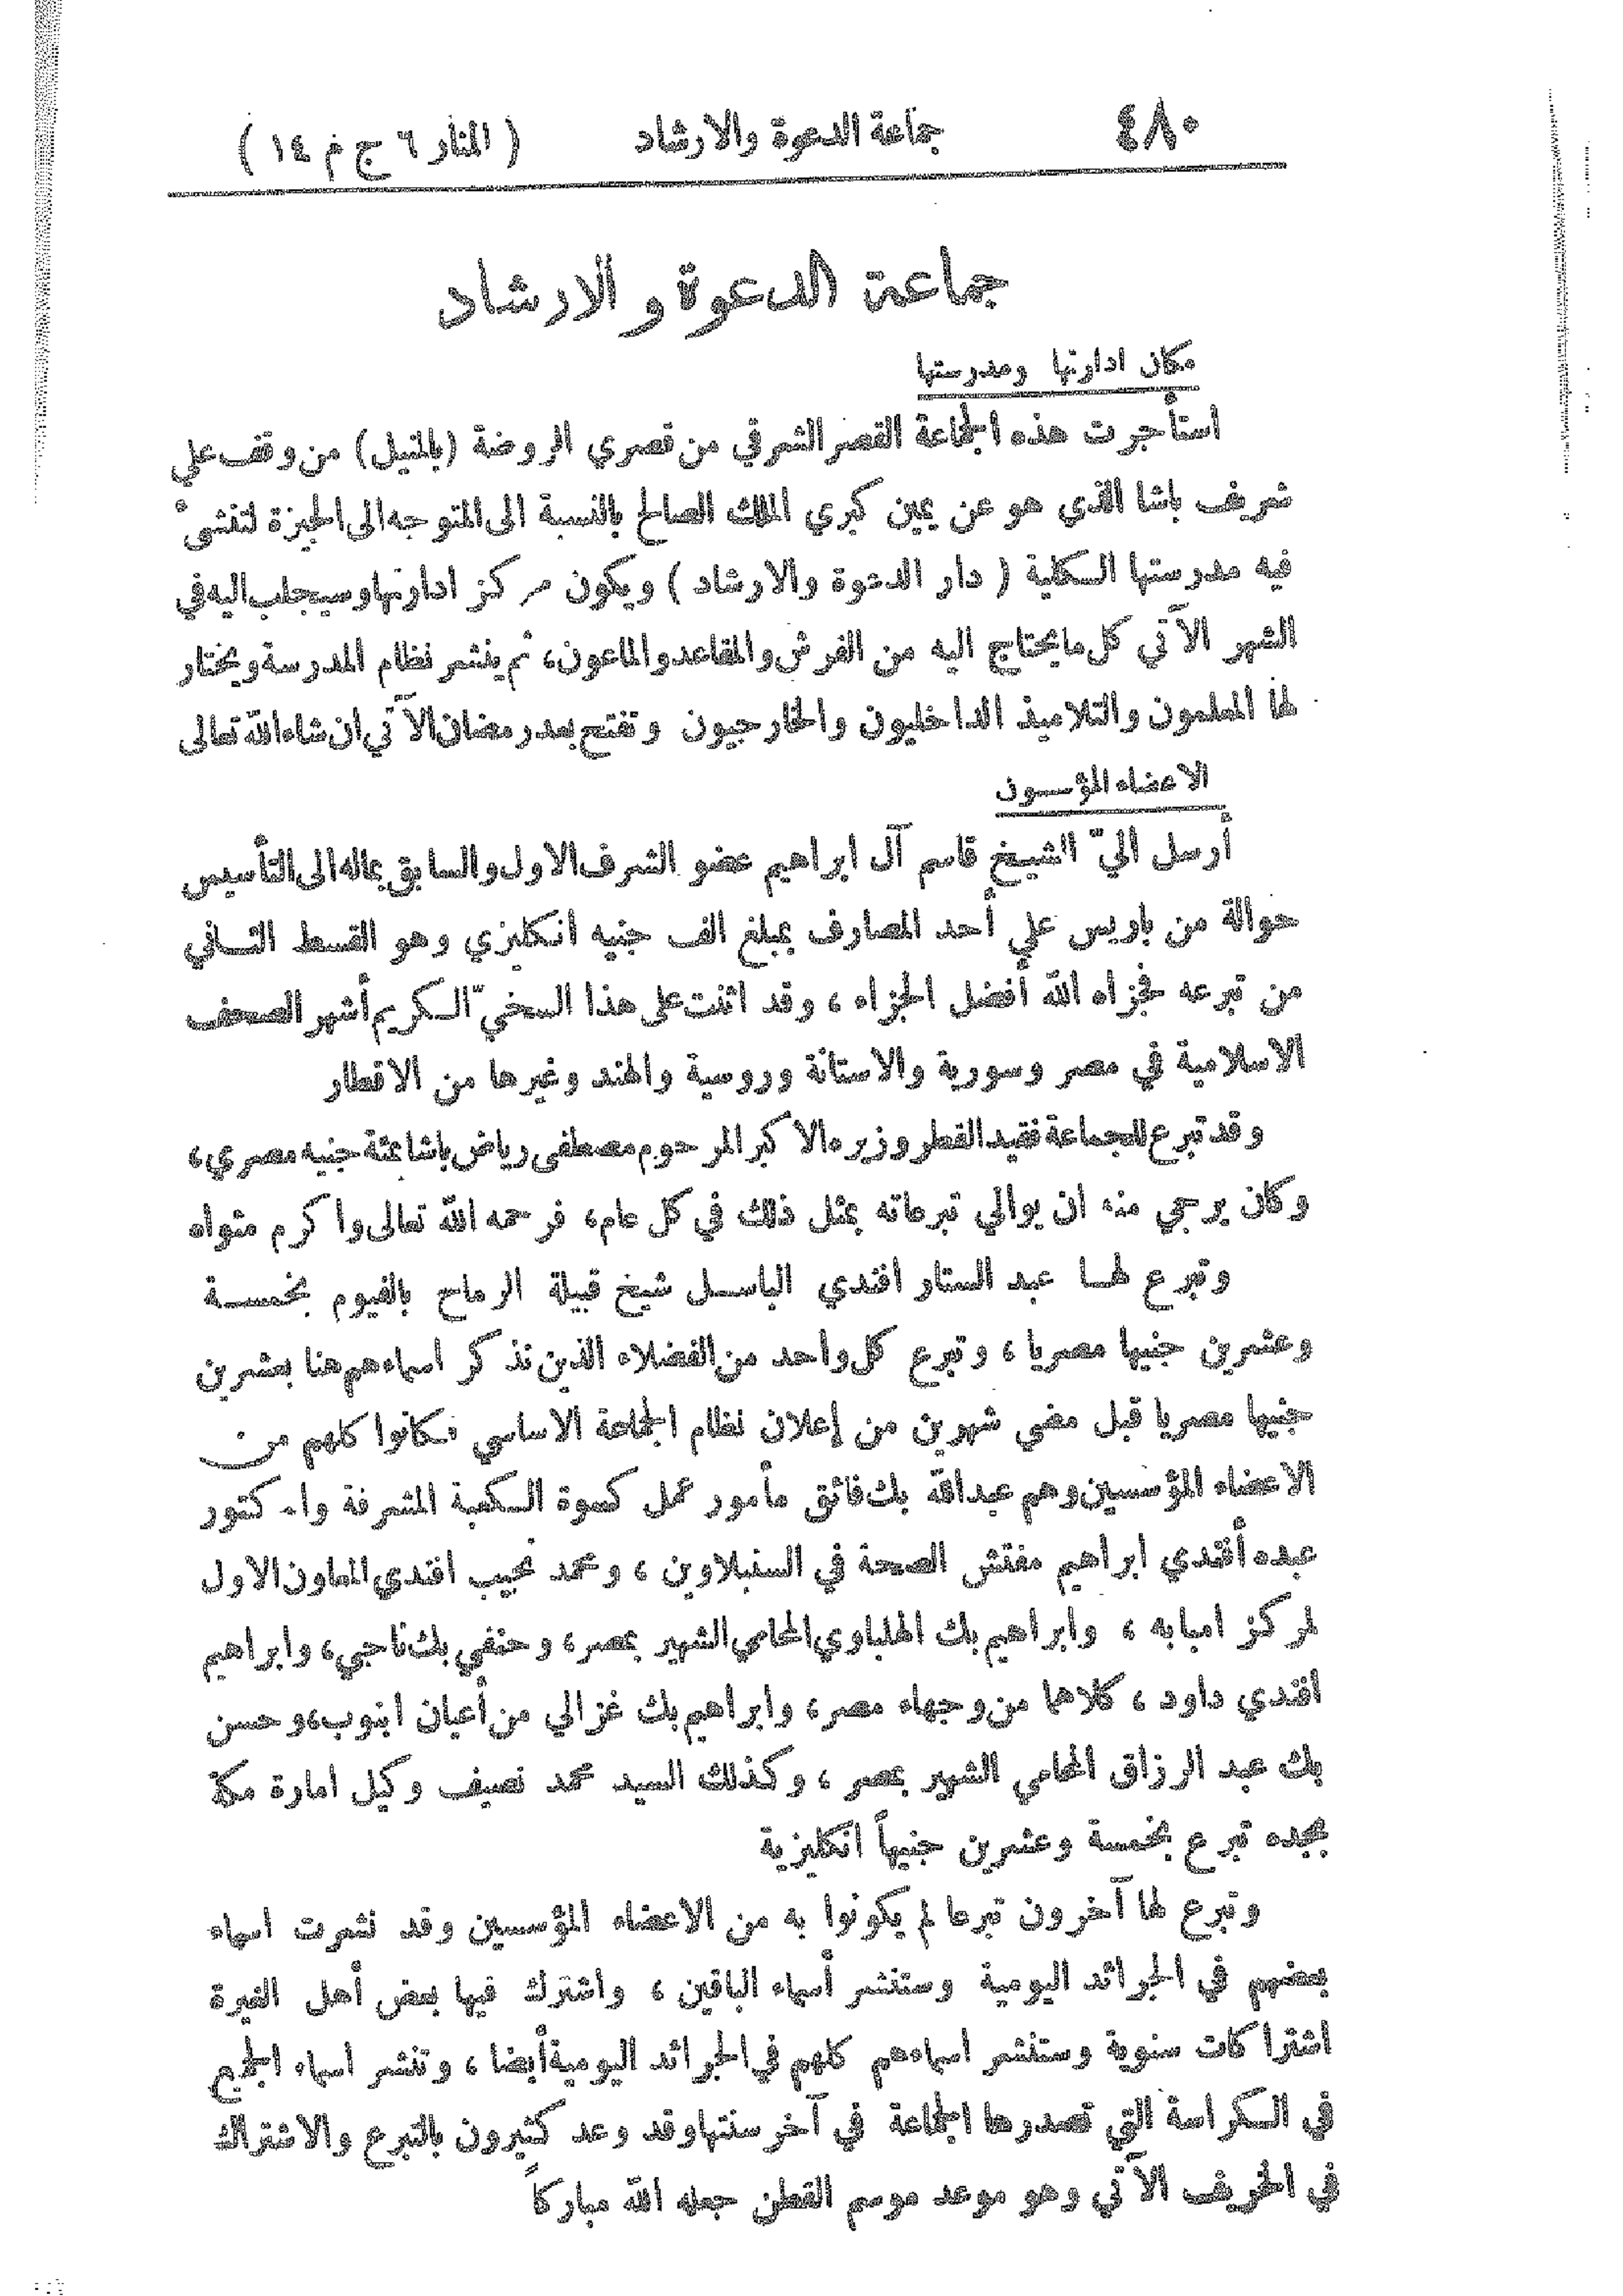 ٤٨٠ جماعة الدعوة والارشاد ( المنار ٦ ج م ١٤ )
جماعة الدعوة والارشاد
مكان ادارتها ومدرستها
استأجرت هذه الجماعة القصر الشرقي من قصري الروضة (بالمنيل) من وقف علي
شريف باشا الذي هو عن يمين كبري الملك الصالح بالنسبة الى المتوجه الى الجيزة لتنشئ
فيه مدرستها الكلية ( دار الدعوة والارشاد ) ويكون مركز ادارتها وسيجلب اليه في
الشهر الآتي كل ما يحتاج اليه من الفرش والمقاعد والماعون، ثم ينشر نظام المدرسة ويختار
لها المعلمون والتلاميذ الداخليون والخارجيون وتفتح بعد رمضان الآتي ان شاء الله تعالى
الاعضاء المؤسسون
أرسل اليّ الشيخ قاسم آل ابراهيم عضو الشرف الاول والسابق بماله الى التأسيس
حوالة من باريس علي أحد المصارف بمبلغ الف جنيه انكليزي وهو القسط الثاني
من تبرعه فجزاه الله أفضل الجزاء ، وقد اثنت على هذا السخيّ الكريم أشهر الصحف
الاسلامية في مصر وسورية والاستانة وروسية والهند وغيرها من الاقطار
وقد تبرع للجماعة فقيد القطر وزيره الاكبر المرحوم مصطفى رياض باشا بمئة جنيه مصري،
وكان يرجي منه ان يوالي تبرعاته بمثل ذلك في كل عام، فرحمه الله تعالى واكرم مثواه
وتبرع لها عبد الستار افندي الباسل شيخ قبيلة الرماح بالفيوم بخمسة
وعشرين جنيها مصريا ، وتبرع كل واحد من الفضلاء الذين نذكر اسماءهم هنا بعشرين
جنيها مصريا قبل مضي شهرين من إعلان نظام الجماعة الاساسي فكانوا كلهم من
الاعضاء المؤسسين وهم عبدالله بك فائق مأمور عمل كسوة الكعبة المشرفة والدكتور
عبده أفندي ابراهيم مفتش الصحة في السنبلاوين ، ومحمد نجيب افندي المعاون الاول
لمركز امبابه ، وابراهيم بك الهلباوي المحامي الشهير بمصر، وحنفي بك ناجي، وابراهيم
افندي داود ، كلاهما من وجهاء مصر، وابراهيم بك غزالي من أعيان ابنوب، وحسن
بك عبد الرزاق المحامي الشهير بمصر ، وكذلك السيد محمد نصيف وكيل امارة مكة
بجده تبرع بخمسة وعشرين جنيهاً انكليزية
وتبرع لها آخرون تبرعا لم يكونوا به من الاعضاء المؤسسين وقد نشرت اسماء
بعضهم في الجرائد اليومية وستنشر أسماء الباقين ، واشترك فيها بعض أهل الغيرة
اشتراكات سنوية وستنشر اسماءهم كلهم في الجرائد اليومية أيضا ، وتنشر اسماء الجميع
في الكراسة التي تصدرها الجماعة في آخر سنتها وقد وعد كثيرون بالتبرع والاشتراك
في الخريف الآتي وهو موعد موسم القطن جعله الله مباركاً